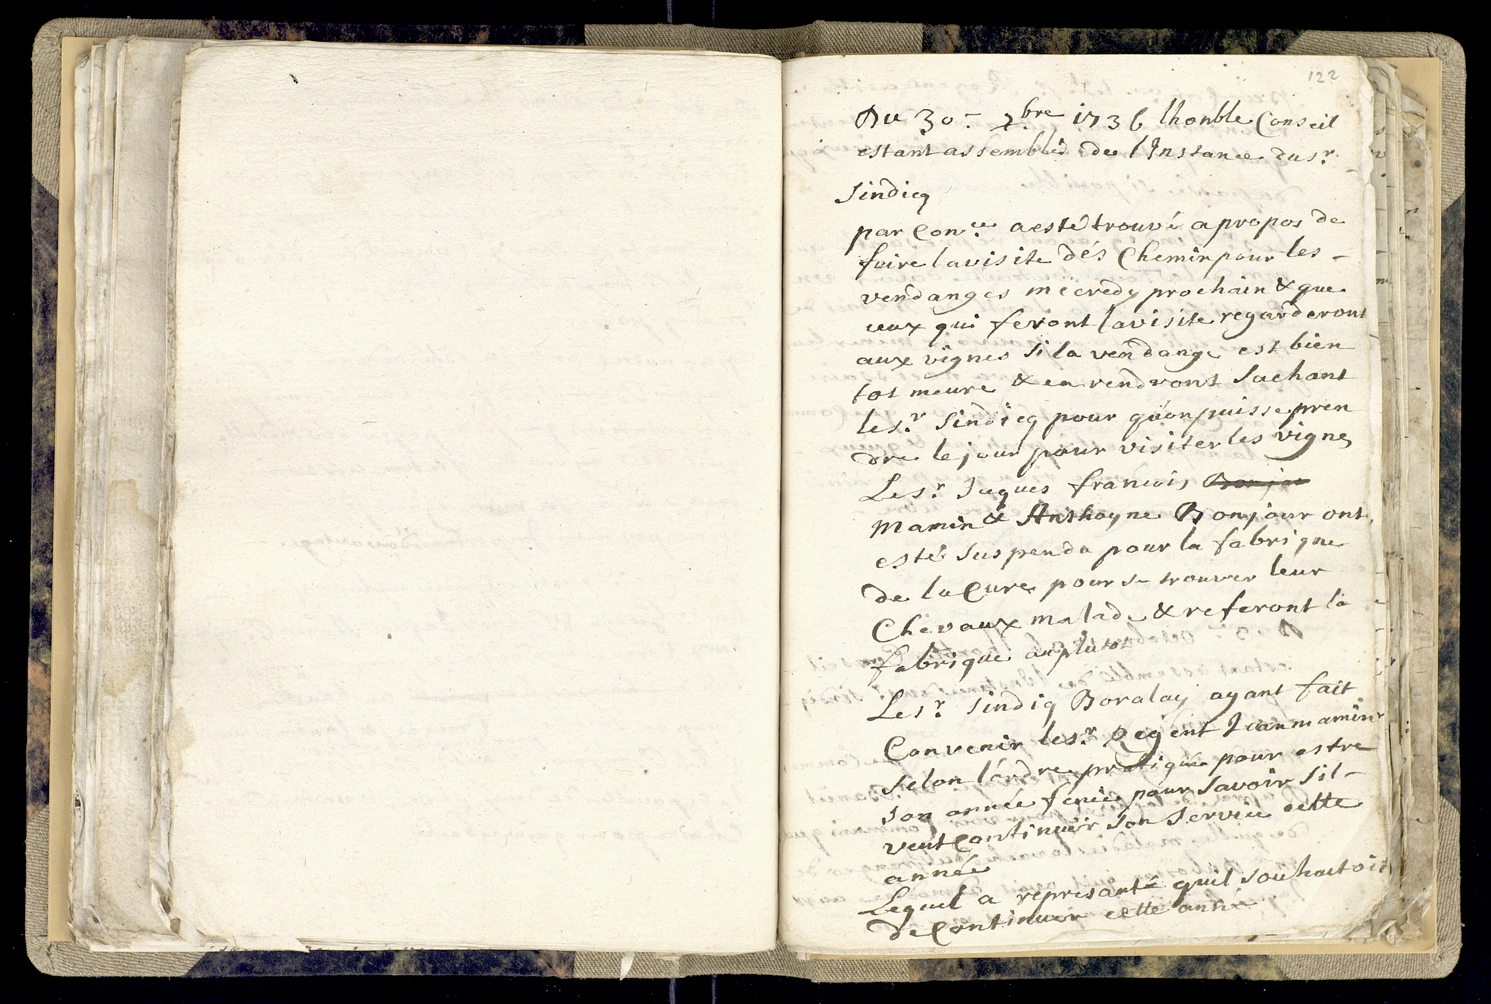 122
Du 30.e 7.bre 1736 lhonble Conseil
estant assemblé de lInstance du sr.
Sindicq
par Con.ce a esté trouvé a propos de
faire la visite dés Chemin pour les -
vendanges mecredy prochain & que
ceux qui feront la visite regarderont
aux vignes si la vendange est bien
tot meure & en rendront sachant
le sr. Sindicq pour quon puisse pren
dre le jour pour visiter les vignes
Les r. Jaques francois Bonjor
mamin & Anthoyne Bonjour ont
esté suspendu pour la fabrique
de la Cure pour se trouver leur
Chevaux malade & referont la
fabrique au plutot
Le sr. sindiq Boralay ayant fait
Convenir le sr. Regent Jean mamin
selon lordre pratiquée pour estre
son année finie pour savoir sil -
veut Continuer son service cette
année
Lequel a represanté quil souhaitoit
de Continuer cette année